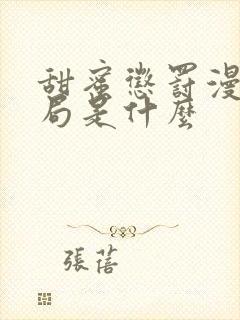 甜蜜懲罰漫
局是什麼
張蓓